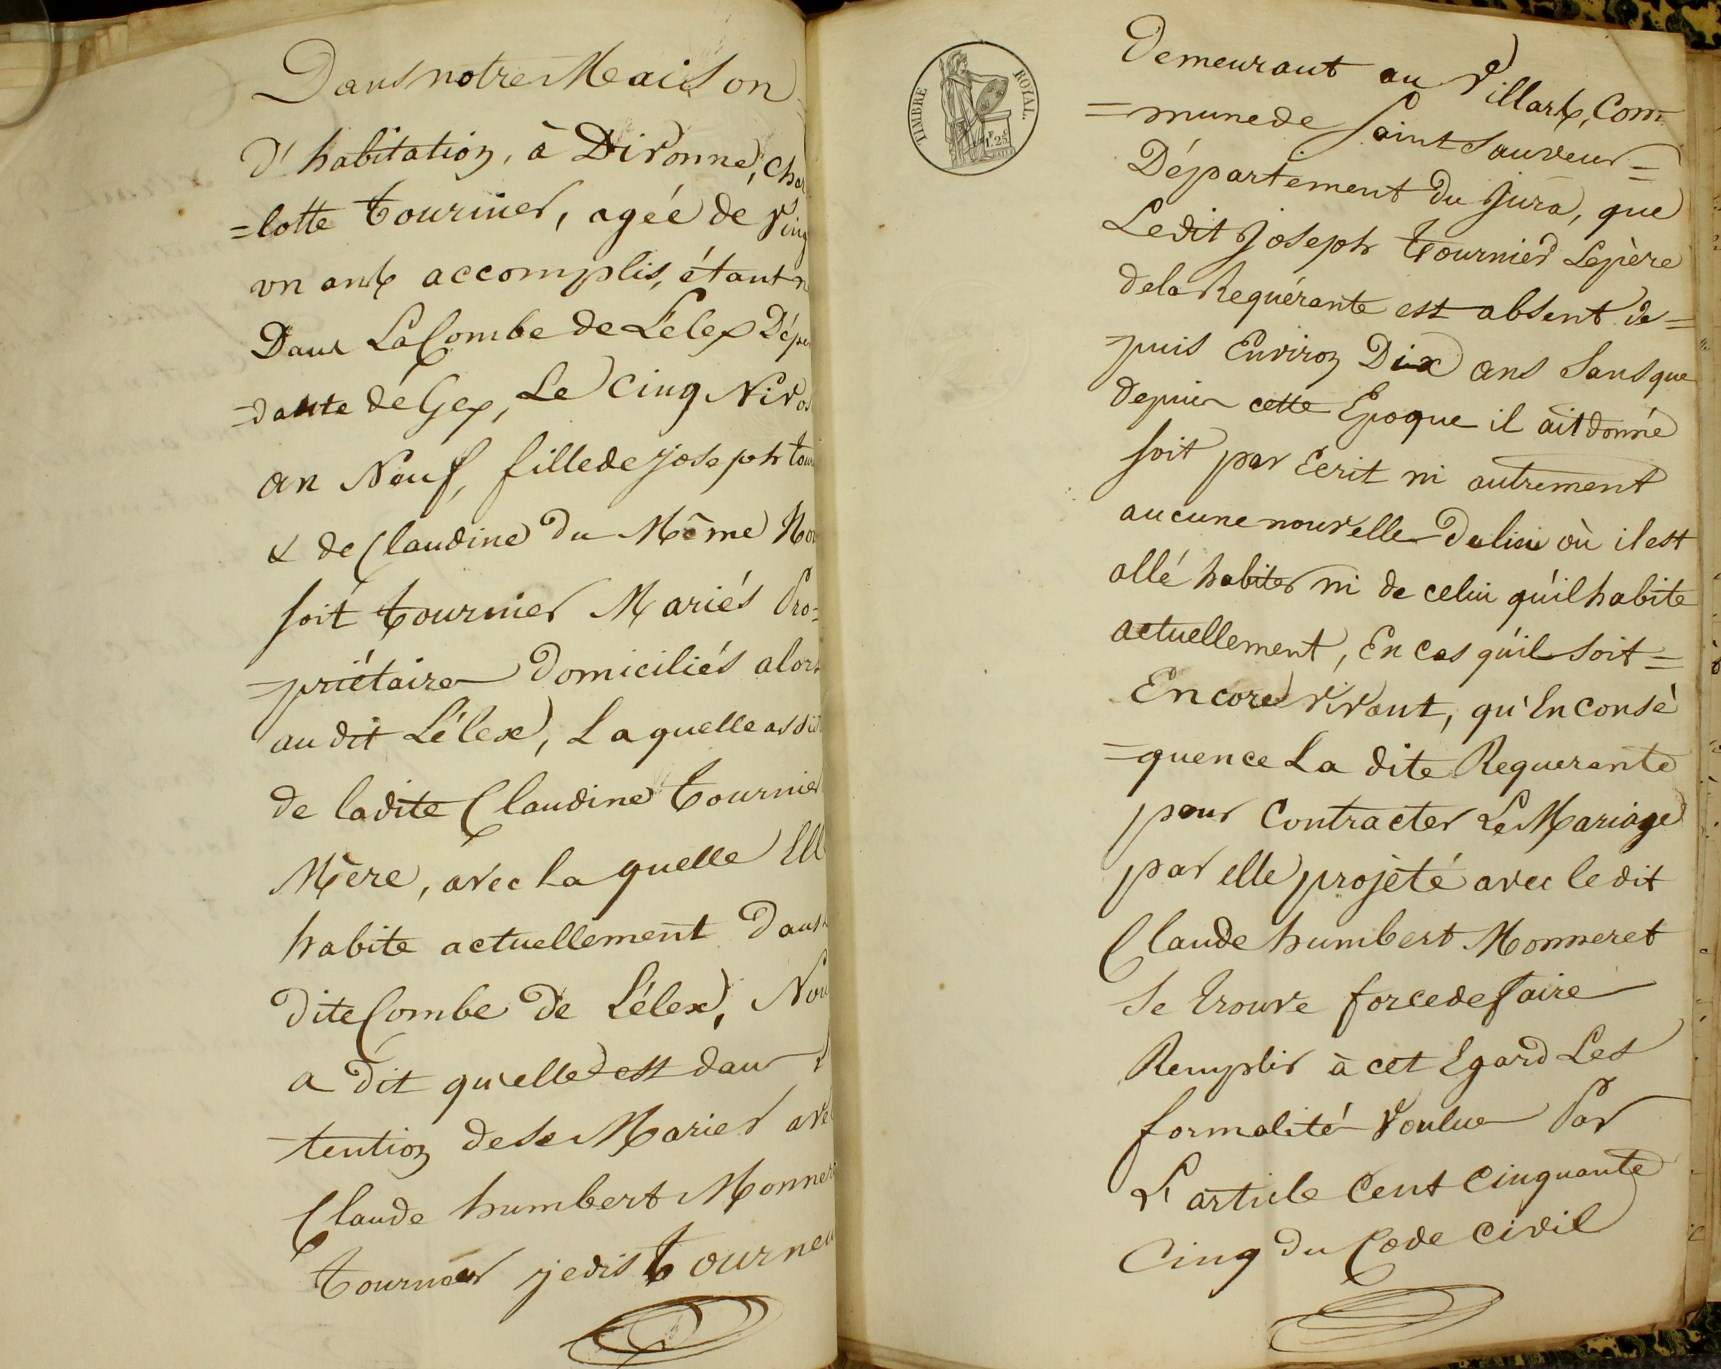 Dans notre Maison
d'habitation, à Divonne, Cha
=lotte tournier, agéé de Ving
un ans accomplis, étant n
Dans La Combe de Lélex Dép
=dante de Gex, Le Cinq Nivos
an Neuf, fille de joseph tour
& de Claudine du Même No
soit tournier Mariés Pro=
=priétaires Domiciliés alors
au dit Lélex, Laquelle assis
de ladite Claudine tournier
Mère, avec laquelle Elle
habite actuellement Dans
dite Combe de Lélex, Nou
a dit qu'elle est dans
tention de se Marier ave
Claude humbert Monner
tourneur je dis tourneu
TIMBRE ROYAL.
1F.25C
Demeurant au Villard, Com=
=mune de Saint Sauveur=
Département du Jura, que
Ledit Joseph tournier Le père
de la Requérante est absent de=
=puis Environ Dix ans sans que
depuis cette Epoque il ait donné
soit par Ecrit ni autrement
aucune nouvelle du lieu où il est
allé habiter ni de celui qu'il habite
actuellement, En cas qu'il soit=
Encore vivant, qu'En consé
=quence La dite Requerante
pour Contracter Le Mariage
par elle projeté avec le dit
Claude humbert Monneret
se trouve forcé de faire
Remplir à cet Egard Les
formalités voulues Par
L'article Cent Cinquante
Cinq du Code Civil